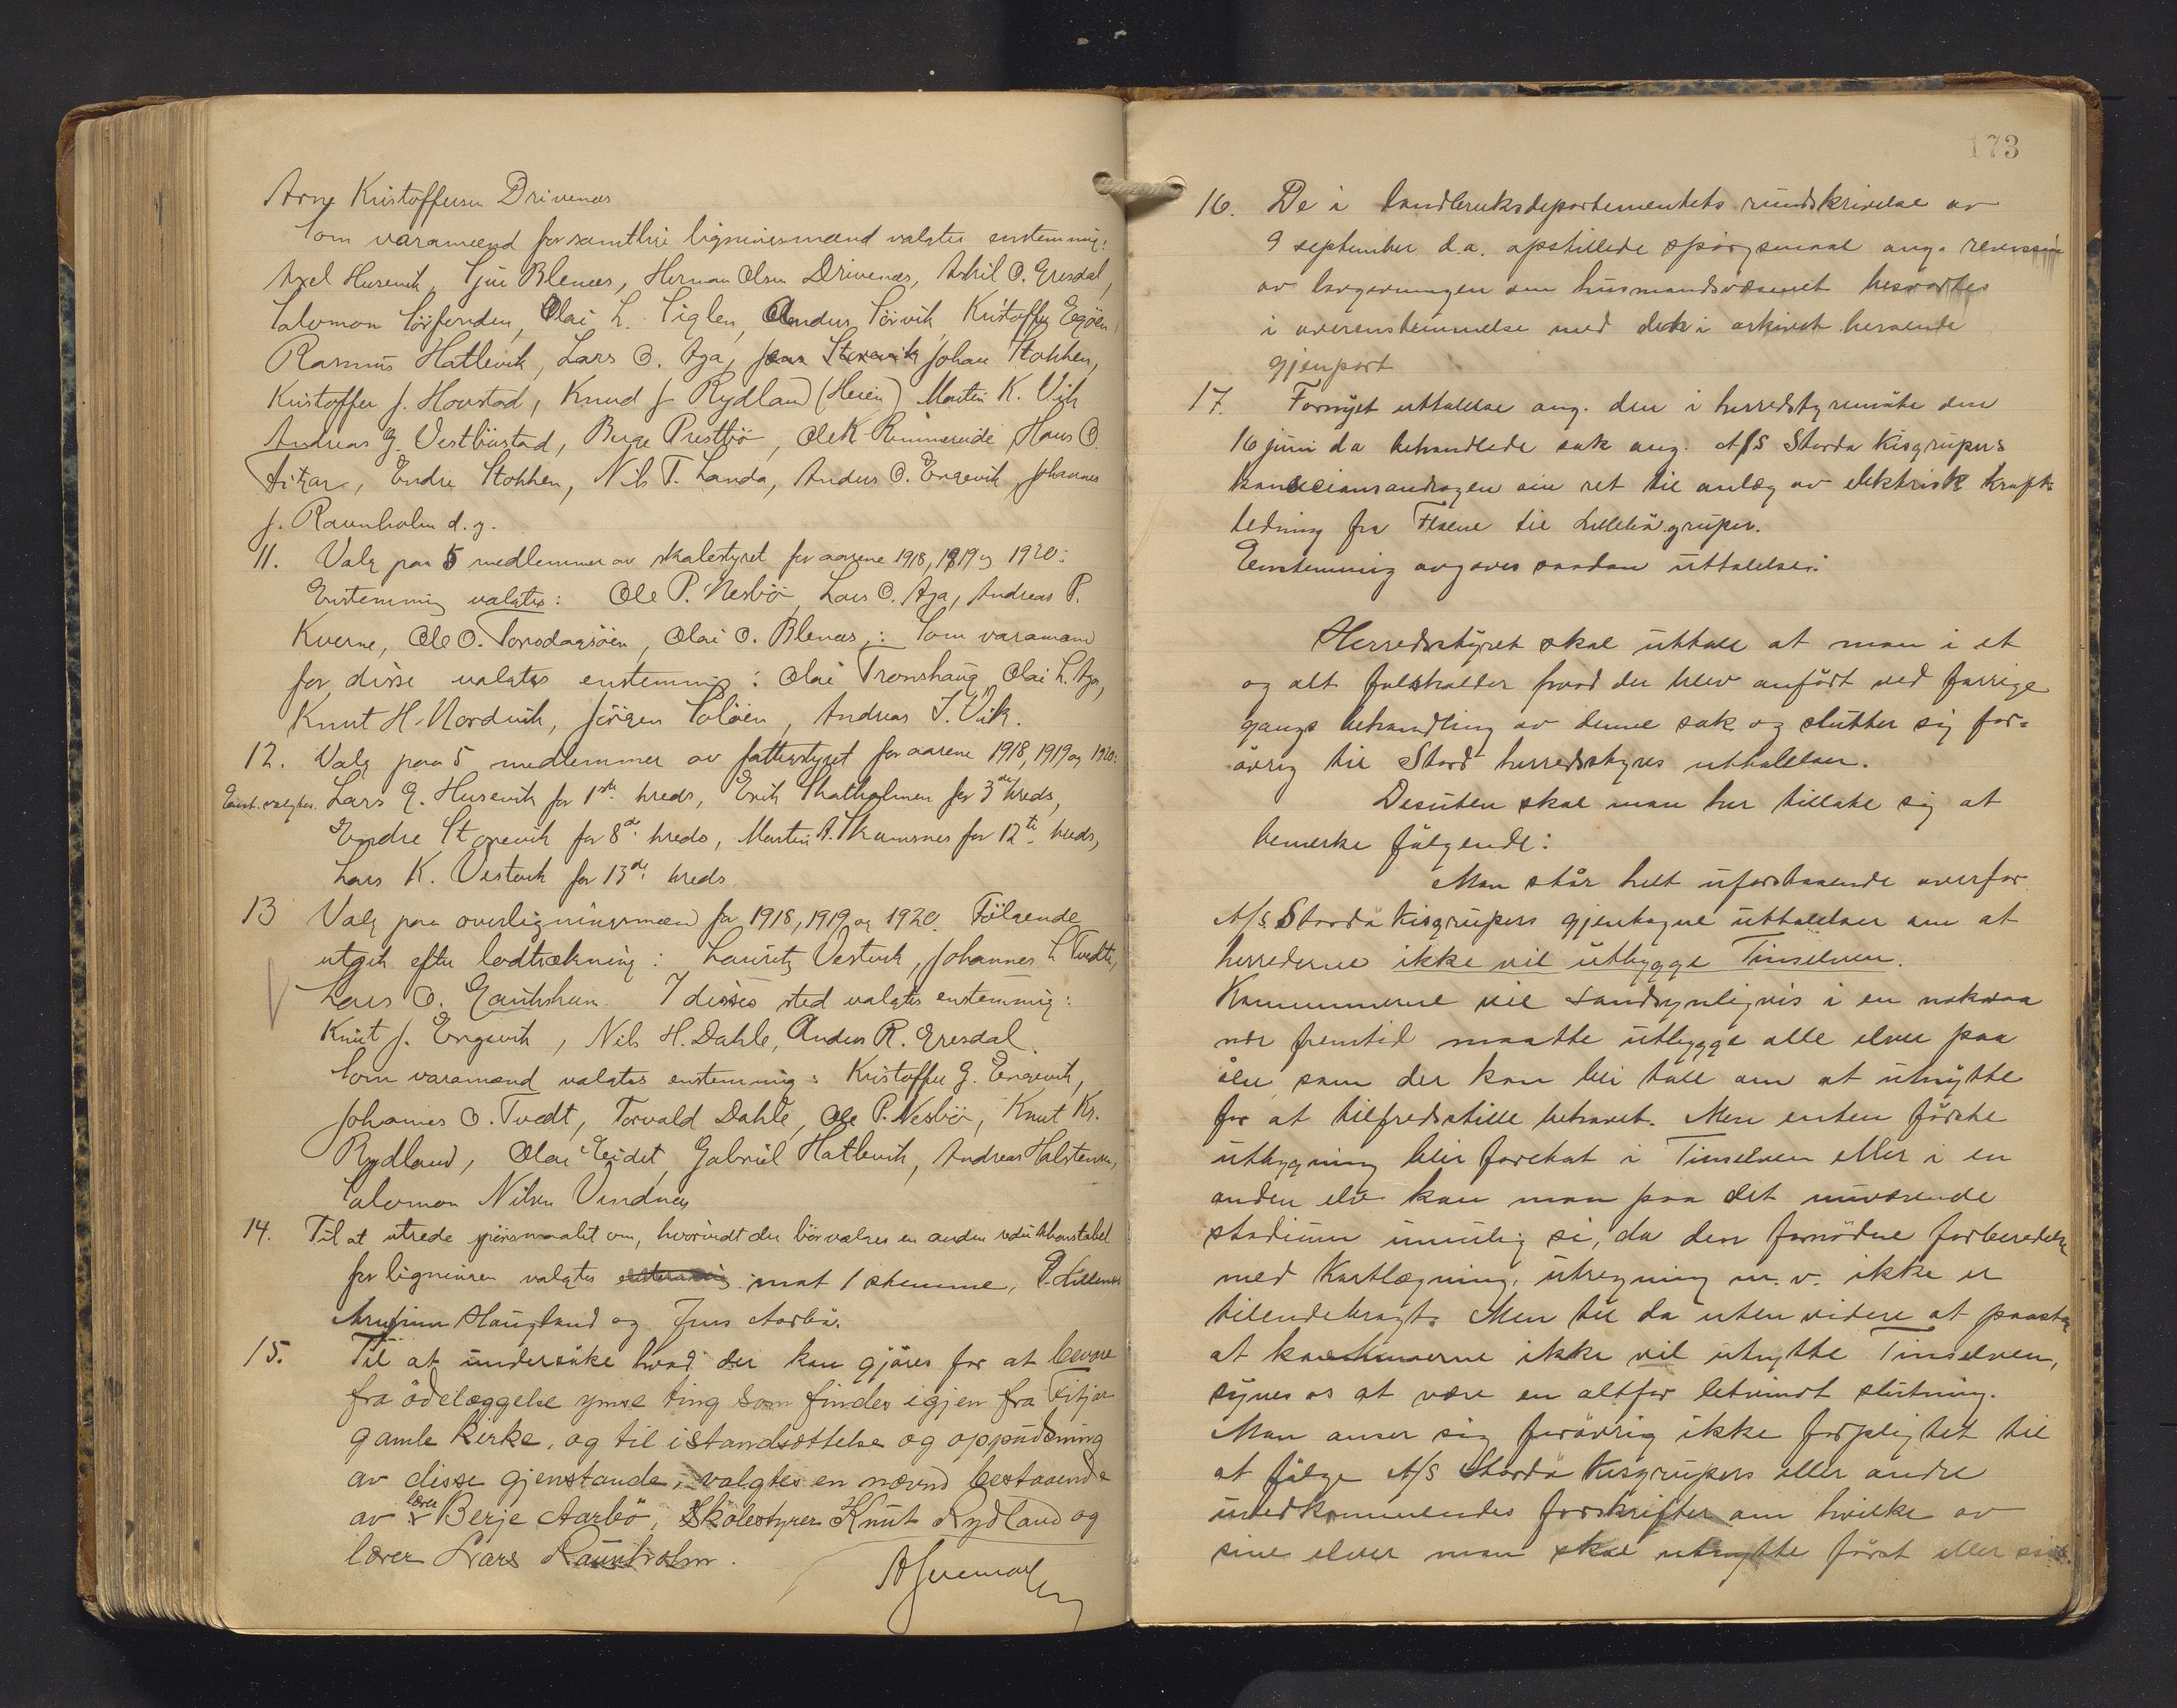 Arne Kristoffersen Drivenæs
Som varamænd for samtlige ligningsmænd valgtes enstemmig:
Axel Husevik, Sjur Blenæs, Herman Olsen Drivenæs, Askil O. Eresdal,
Salomon Sörfonden, Olai L. Siglen, Anders Sörvik, Kristoffer Egöen,
Rasmus Hatlevik, Lars O. Aga, Johan Stokken,
Kristoffer J. Hovstad, Knud J Rydland (Heien) Martin K. Vik
Andreas G. Vestböstad, Berge Prestbö, Ole K Rimmereide Hans O.
Fitjar, Endre Stokken, Nils T. Landa, Anders O. Engevik, Johannes
J. Raunholm d. y.
11. Valg paa 5 medlemmer av skolestyret for aarene 1918, 1919 og 1920:
Enstemmig valgtes: Ole P. Nesbö, Lars O. Aga, Andreas P.
Kverne, Ole O. Torsdagsöen, Olai O. Blenæs,: Som varamænd
for disse valgtes enstemmig: Olai Tronshaug Olai L. Aga,
Knut H. Nordvik, Jörgen Solöen, Andreas J. Vik.
12. Valg paa 5 medlemmer av fattigstyret for aarene 1918, 1919 og 1920:
Enst. valgtes. Lars E. Husevik for 1ste kreds, Erik Skatholmen for 3die kreds,
Endre Storevik for 8de kreds, Martin A. Skumsnes for 12te kreds,
Lars K. Vestvik for 13de kreds.
13 Valg paa overligningsmæn for 1918, 1919 og 1920. Fölgende
utgik efter lodtrækning: Lauritz Vestvik, Johannes L Tvedte,
Lars O. I disses sted valgtes enstemmig:
Knut J. Engevik, Nils H. Dahle, Anders R. Eresdal.
Som varamænd valgtes enstemmig: Kristoffer G. Engevik,
Johannes O. Tvedt, Torvald Dahle, Ole P. Nesbö, Knut Kr.
Rydland, Olai Eidet, Gabriel Hatlevik, Andreas Halstensen,
Salomon Nilsen Vindnes
14. Til at utrede spörsmaalet om, hvorvidt der bör vælges en anden reduktionstabel
for ligningen valgtes enstemmig mot 1 stemme,
Haugland og Jens Aarbö.
15. Til at undersöke hvad der kan gjöres for at berge
fra ödelæggelse ymse ting som findes igjen fra Fitjar
gamle Kirke, og til istandsættelse og oppudsning
av disse gjenstande, valgtes en nævnd bestaaende
av lærer Berje Aarbö, Skolestyrer Knut Rydland og
lærer Lars Raunholm.
173
16. De i landbruksdepartementets rundskrivelse av
9 september d.a. opstillede spörgsmaal ang. revision
av lovgivningen om husmandsvæsenet besvartes
i overensstemmelse med det i arkivet beroende
gjenpart
17. Fornyet uttalelse ang. den i herredsstyremöte den
16 juni da behandlede sak ang. A/S Stordö Kisgrubers
koncessionsandragen om ret til anlæg av elektrisk kraft-
ledning fra Flsene til Lillebö gruber.
Enstemmig avgaves saadan uttalelse:
Herredsstyret skal uttale at man i et
og alt fastholder hvad der blev anfört ved forrige
gangs behandling av denne sak og slutter sig for-
övrig til Stord herredsstyres uttalelser.
Desuten skal man her tillate sig at
bemerke fölgende:
Man står helt uforstaaende overfor
A/S. Stordö Kisgrubers gjentagne uttalelser om at
herrederne ikke vil utbygge Tinselven.
Kommunerne vil sandsynligvis i en noksaa
nær fremtid maatte utbygge alle elver paa
öen, som der kan bli tale om at utnytte
for at tilfredsstille behovet. Men enten förste
utbygning blir foretat i Tinselven eller i en
anden elv kan man paa det nuværende
stadium umulig si, da den fornödne forberedelse
med kartlægning, utregning m.v. ikke er
tilendebragt. Men til da uten videre at paasta
at kommunerne ikke vil utnytte Tinselven,
synes os at være en altfor letvindt slutning.
Man anser sig forövrig ikke forpligtet til
at fölge A/S Stordö Kisgrubers eller andre
uvedkommendes forskrifter om hvilke av
sine elver man skal utnytte först eller sist.